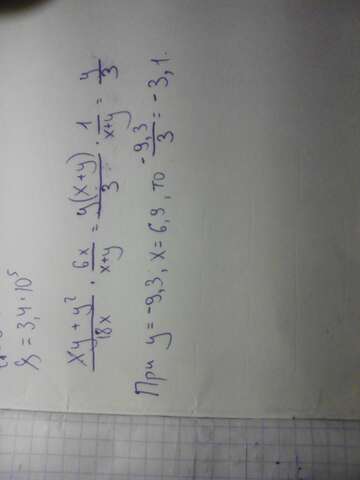 S = 3,4·10⁵
(xy + y²)/18x · 6x/(x+y) = y(x+y)/3 · 1/(x+y) = y/3
При y = -9,3, x = 6,9, то -9,3/3 = -3,1.